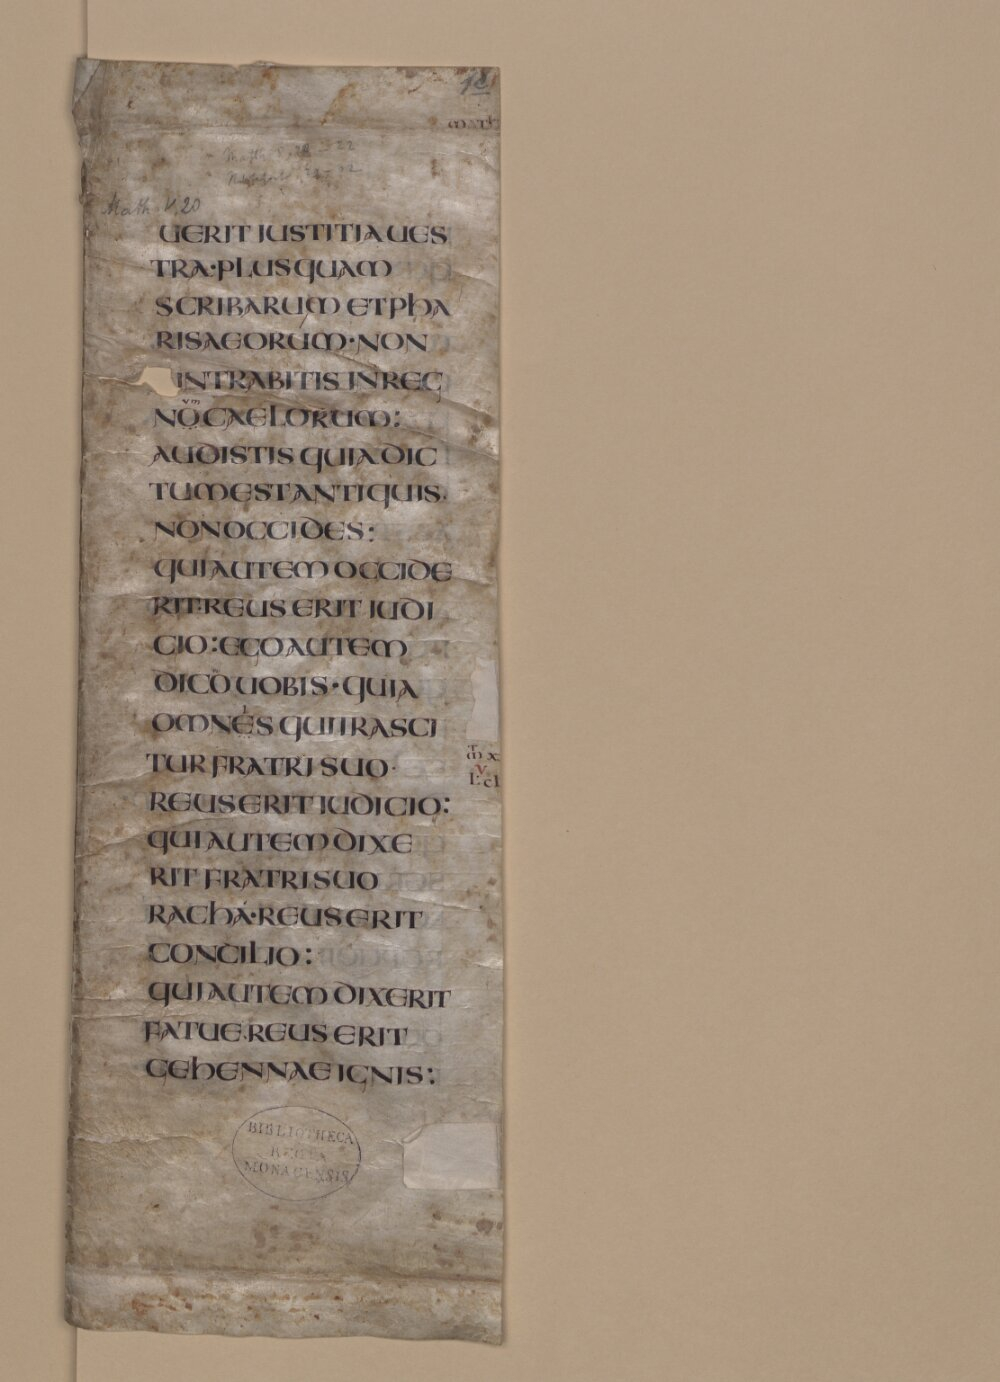 1c
MATH
Math V, 20
UERIT IUSTITIA UES
TRA·PLUS QUAM
SCRIBARUM ET PHA
RISAEORUM·NON
INTRABITIS IN REG
NO CAELORUM:
AUDISTIS QUIA DIC
TUM EST ANTIQUIS·
NON OCCIDES:
QUI AUTEM OCCIDE
RIT·REUS ERIT IUDI
CIO: EGO AUTEM
DICO UOBIS·QUIA
OMNES QUI IRASCI
TUR FRATRI SUO·
REUS ERIT IUDICIO:
QUI AUTEM DIXE
RIT FRATRI SUO
RACHA·REUS ERIT
CONCILIO:
QUI AUTEM DIXERIT
FATUE·REUS ERIT
GEHENNAE IGNIS:
BIBLIOTHECA
REGIA
MONACENSIS